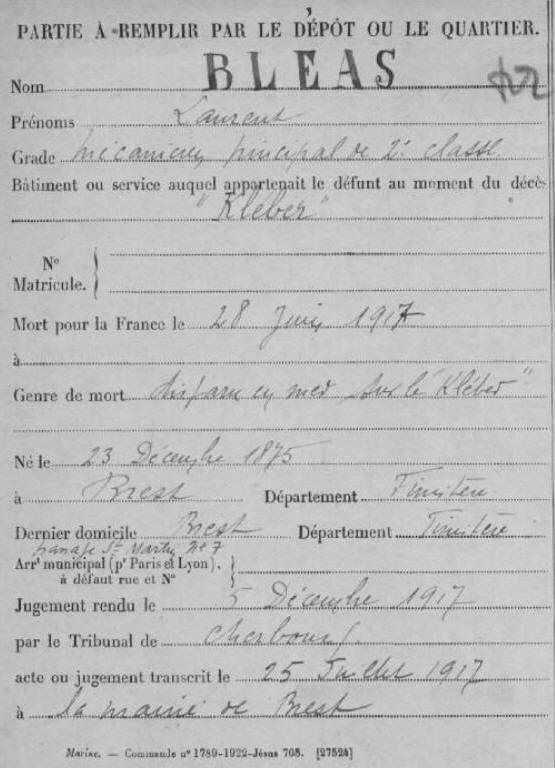 PARTIE À REMPLIR PAR LE DÉPÔT OU LE QUARTIER.
Nom BLEAS
Prénoms Laurent
Grade Mécanicien principal de 2e classe
Bâtiment ou service auquel appartenait le défunt au moment du décès
"Kléber"
No
Matricule.
Mort pour la France le 28 Juin 1917
à
Genre de mort disparu en mer sur le "Kléber"
Né le 23 Décembre 1875
à Brest Département Finistère
Dernier domicile Brest Département Finistère
passage St Martin No 7
Arrt municipal (pr Paris et Lyon),
à défaut rue et No
Jugement rendu le 5 Décembre 1917
par le Tribunal de Cherbourg
acte ou jugement transcrit le 25 Juillet 1917
à la mairie de Brest
Marine. — Commande no 1789-1922-Jésus 708. [27524]